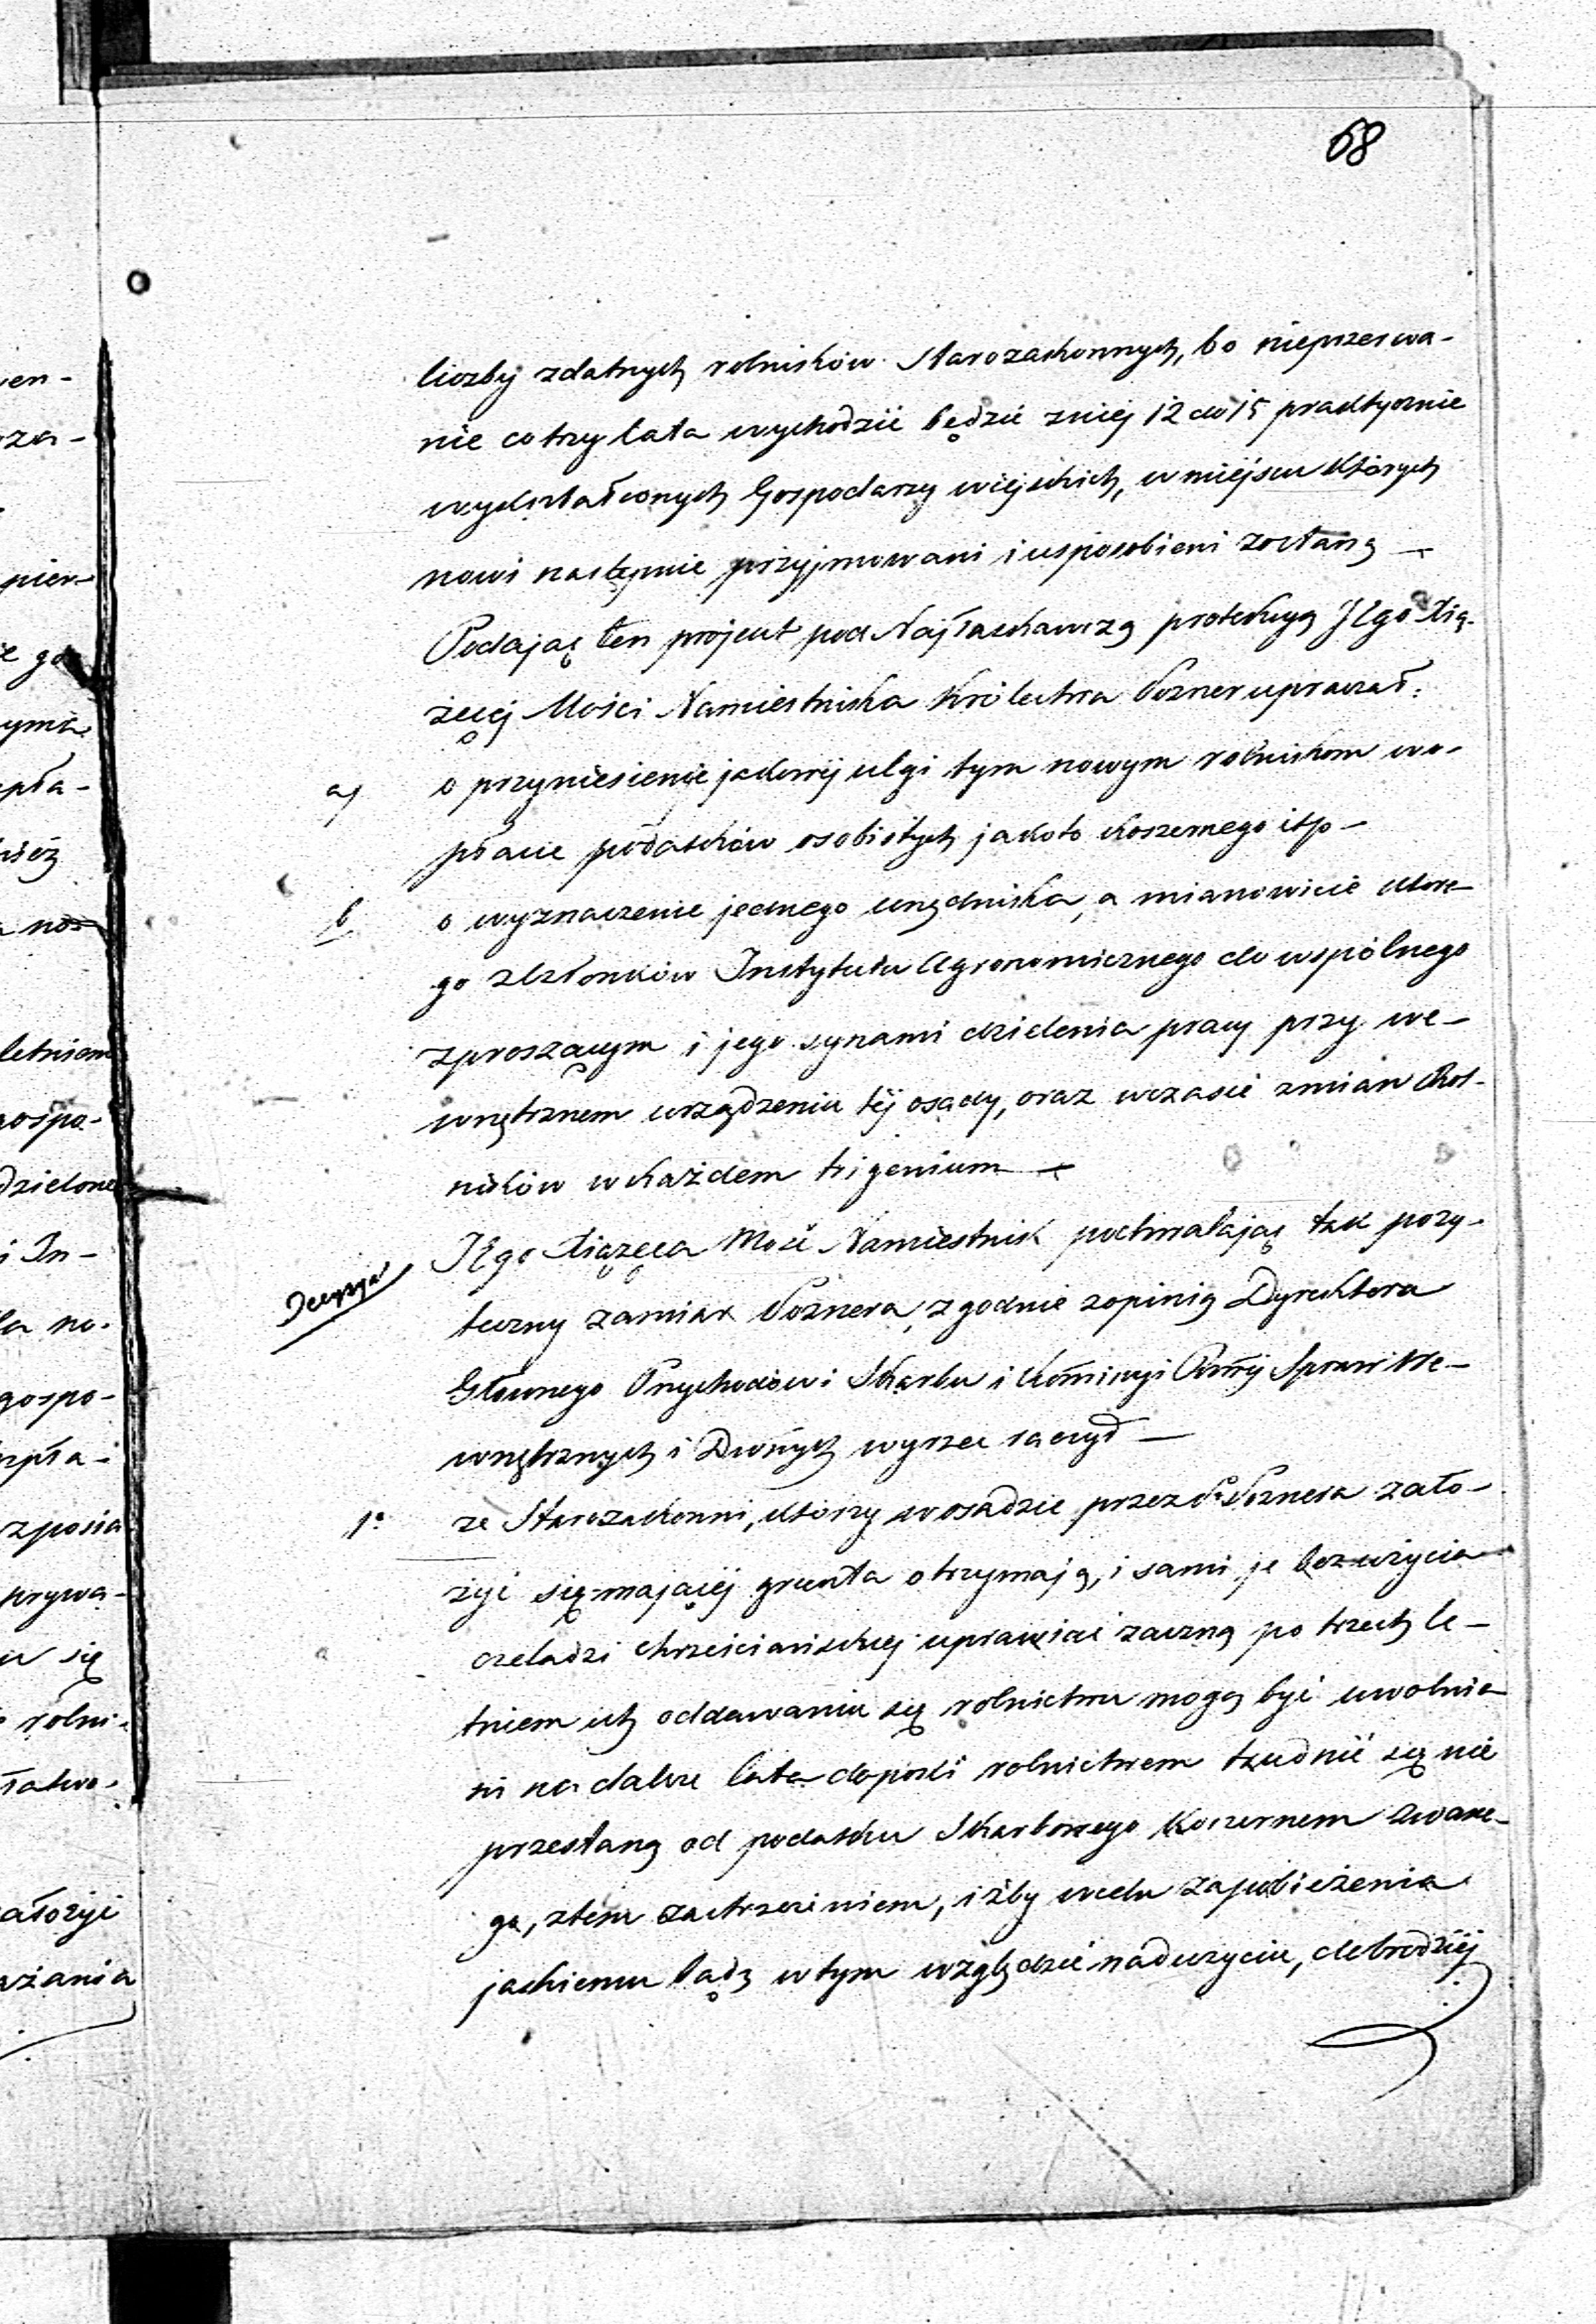 68
liczby zdatnych rolników Starozakonnych, bo nieprzerwa-
nie co trzy lata wychodzić będzie z niej 12 do 15 praktycznie
wykształconych Gospodarzy wiejskich, w miejscu których
nowi następnie przyjmowani i usposobieni zostaną —
Podając ten projekt pod Najłaskawszą protekcyą JEgo Xią-
żęcej Mości Namiestnika Królestwa Pozner upraszał:
a) o przyniesienie jakowej ulgi tym nowym rolnikom w o-
płacie podatków osobistych jakoto koszernego itp —
b o wyznaczenie jednego urzędnika, a mianowicie które-
go z Członków Instytutu Agronomicznego do wspólnego
z proszącym i jego synami dzielenia pracy przy we-
wnętrznem urządzeniu téj osady, oraz w czasie zmian Rol-
ników w każdem trigenium —
Decyzya JEgo Xiążęca Mość Namiestnik pochwalając tak poży-
teczny zamiar Poznera, zgodnie z opinią Dyrektora
Głównego Przychodów i Skarbu i Kommissyi Rządowej Spraw We-
wnętrznych i Duchownych wyrzec raczył —
1º że Starozakonni, którzy w osadzie przez Pa Poznera zało-
żyć się mającej grunta otrzymają, i sami je bez użycia
czeladzi chrześciańskiej uprawiać zaczną po trzech le-
tniem ich oddawaniu się rolnictwu mogą być uwolnie-
ni na dalsze lata dopóki rolnictwem trudnić się nie
przestaną od podatku Skarbowego Koszernem zwane-
go, z tem zastrzeżeniem, iżby w celu zapobieżenia
jakiemu bądź w tym względzie nadużyciu, dobrodziej